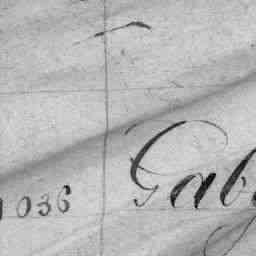 036 Gab